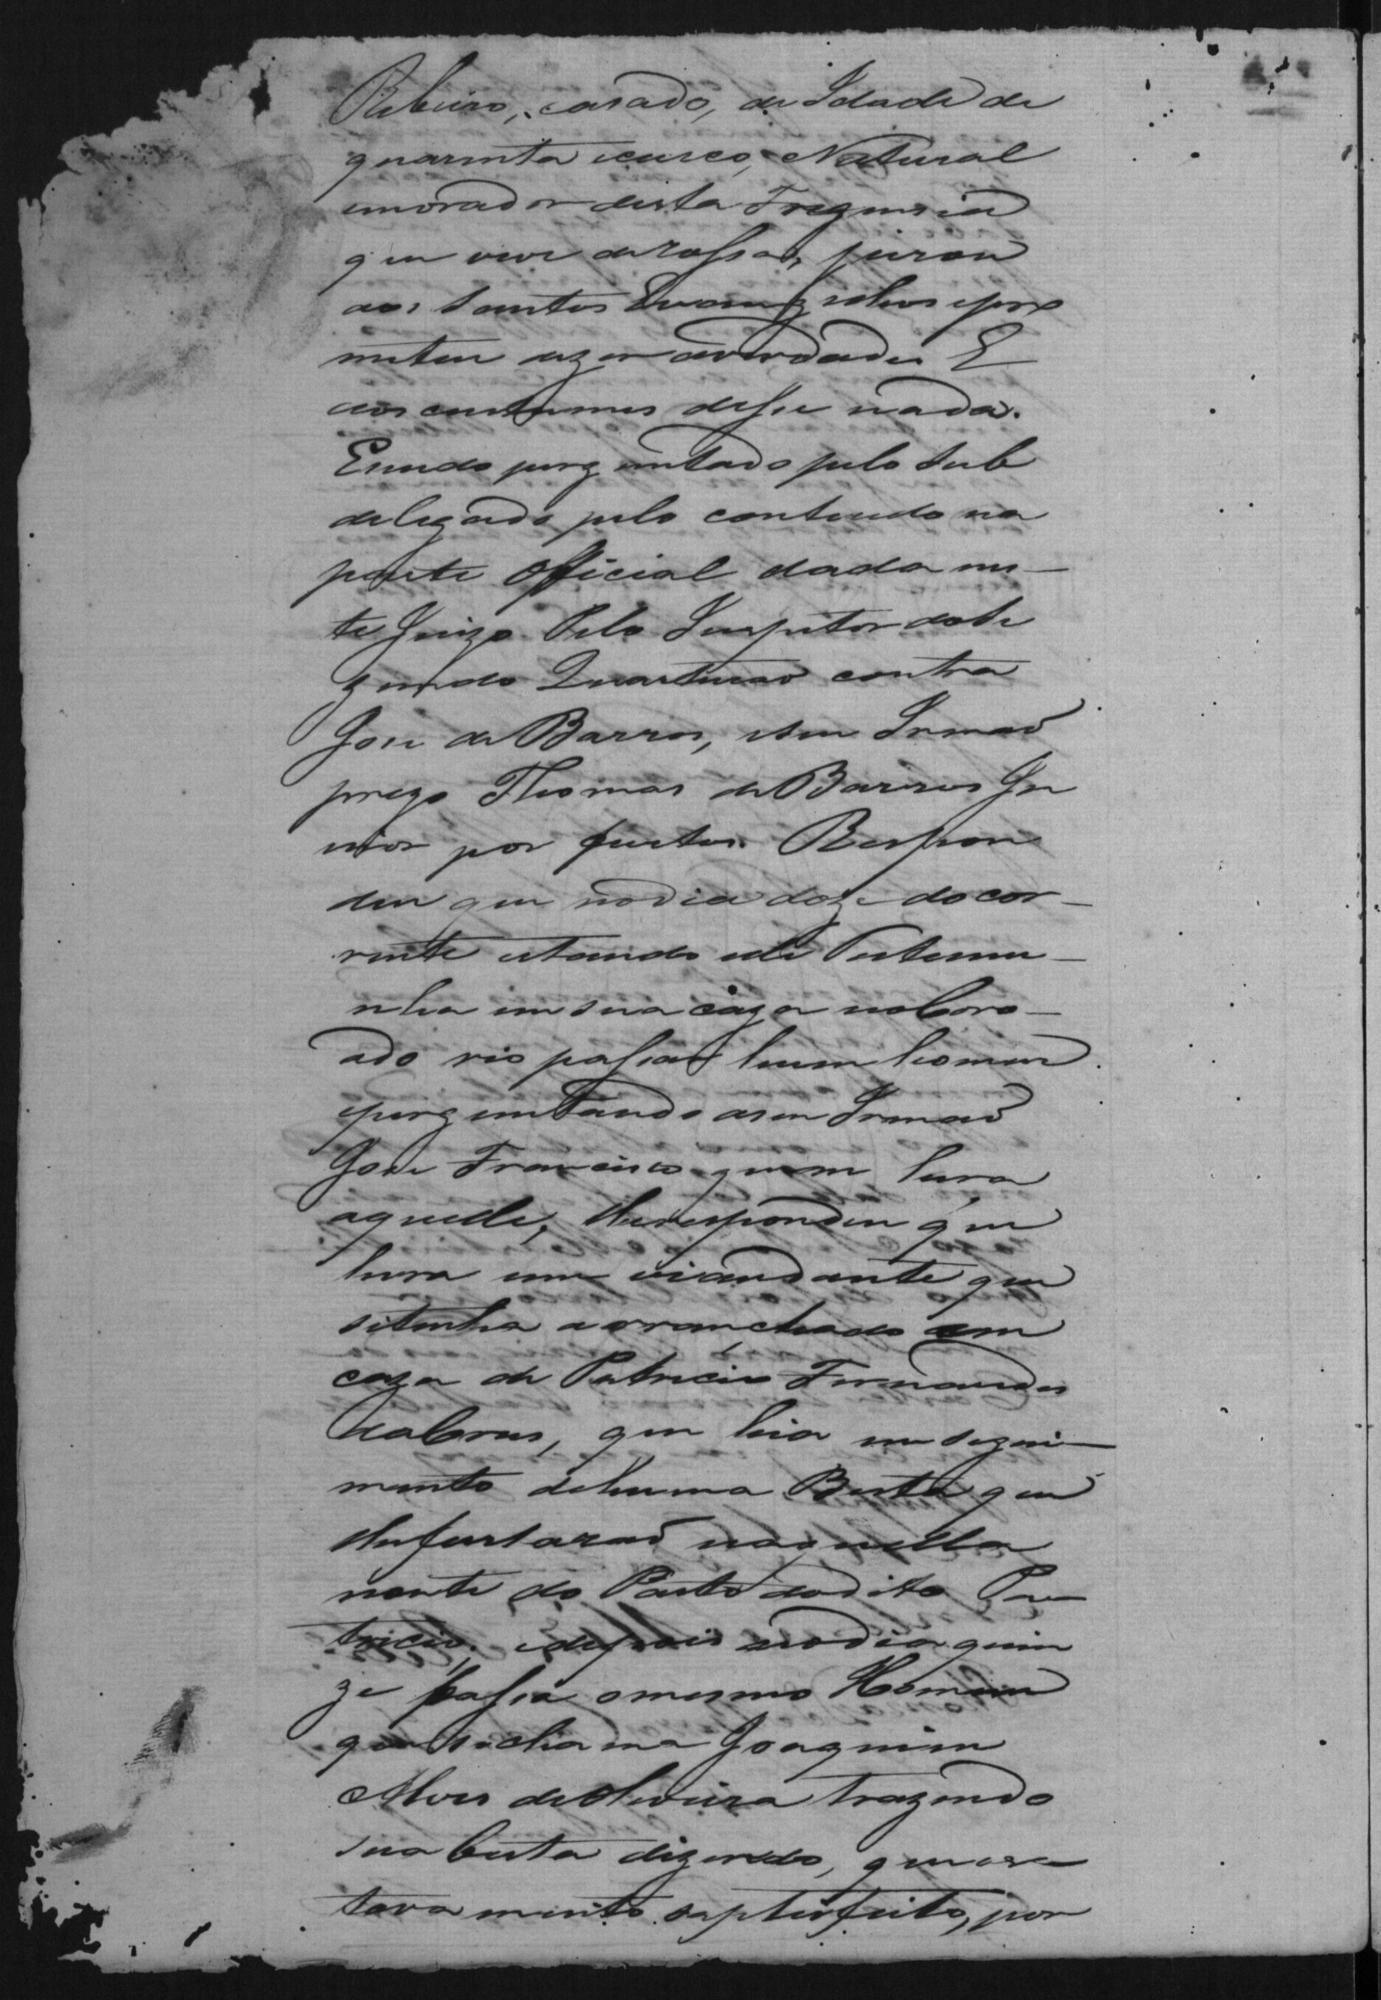 Ribeiro, casado, de Idade de
quarenta ecinco, Natural
emorador desta Freguezia
que vive de rossas, jurou
aos Santos Evangelhos epro
meteu dizer averdade. E
aos custumes disse nada.
Esendo perguntado pelo Sub
delegado pelo contheudo na
parte Official dada nes-
te Juizo Pelo Inspetor do Se
gundo Quarteirão contra
José de Barros, eseu Irmaõ
prezo Thomas de Barros Ju
nior por furtos. Respon
deu que no dia doze do cor-
rente estando elle Testemu-
nha em sua caza na boro-
a do rio passar hum homem
eperguntando aseu Irmaõ
José Francisco quem hera
aquelle, lhe respondeu que
hera um viandante que
se tinha arranchado em
caza de Patricio Fernandes
de Abreu, que hia em segui-
mento de huma Besta que
lhe furtaraõ naquella
noute do Pasto do dito Pa-
tricio, edepois no dia quin
ze passa o mesmo Homem
que se chama Joaquim
Alves de Oliveira trazendo
sua besta dizendo, que es-
tava muito saptisfeito, por